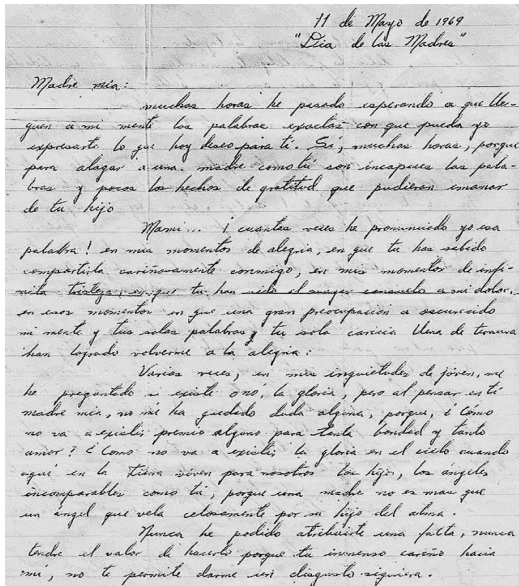 11 de Mayo de 1969
"Dia de las Madres"
Madre mia:
muchas horas he pasado esperando a que lle-
guen a mi mente las palabras exactas con que pueda yo
expresarte lo que hoy deseo para ti. Si, muchas horas, porque
para alagar a una madre como tú son incapaces las pala-
bras y pocos los hechos de gratitud que pudieran emanar
de tu hijo
Mami... ¡ cuantas veces he pronunciado yo esa
palabra! en mis momentos de alegria, en que tu has sabido
compartirla cariñosamente conmigo, en mis momentos de infi-
nita tristeza, en que tu has sido el mayor consuelo a mi dolor,
en esos momentos en que una gran preocupación a oscurecido
mi mente y tus solas palabras y tu sola caricia llena de ternura
han logrado volverme a la alegria.
Varias veces, en mis inquietudes de jóven, me
he preguntado si existe o no, la gloria, pero al pensar en ti
madre mia, no me ha quedado duda alguna, porque, ¿ Cómo
no va a existir premio alguno para tanta bondad y tanto
amor? ¿ Como no va a existir la gloria en el cielo cuando
aqui en la tierra viven para nosotros los hijos, los angeles
incomparables como tú, porque una madre no es mas que
un ángel que vela celosamente por su hijo del alma.
Nunca he podido atribuirte una falta, nunca
tendre el valor de hacerlo porque tu inmenso cariño hacia
mí, no te permite darme un disgusto siquiera